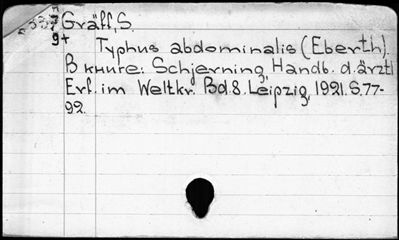 Gräff, S.
9+
Typhus abdominalis (Eberth).
В книге: Schjerning, Handb. d. ärztl.
Erf. im Weltkr. Bd. 8. Leipzig, 1921. S. 77-
92.